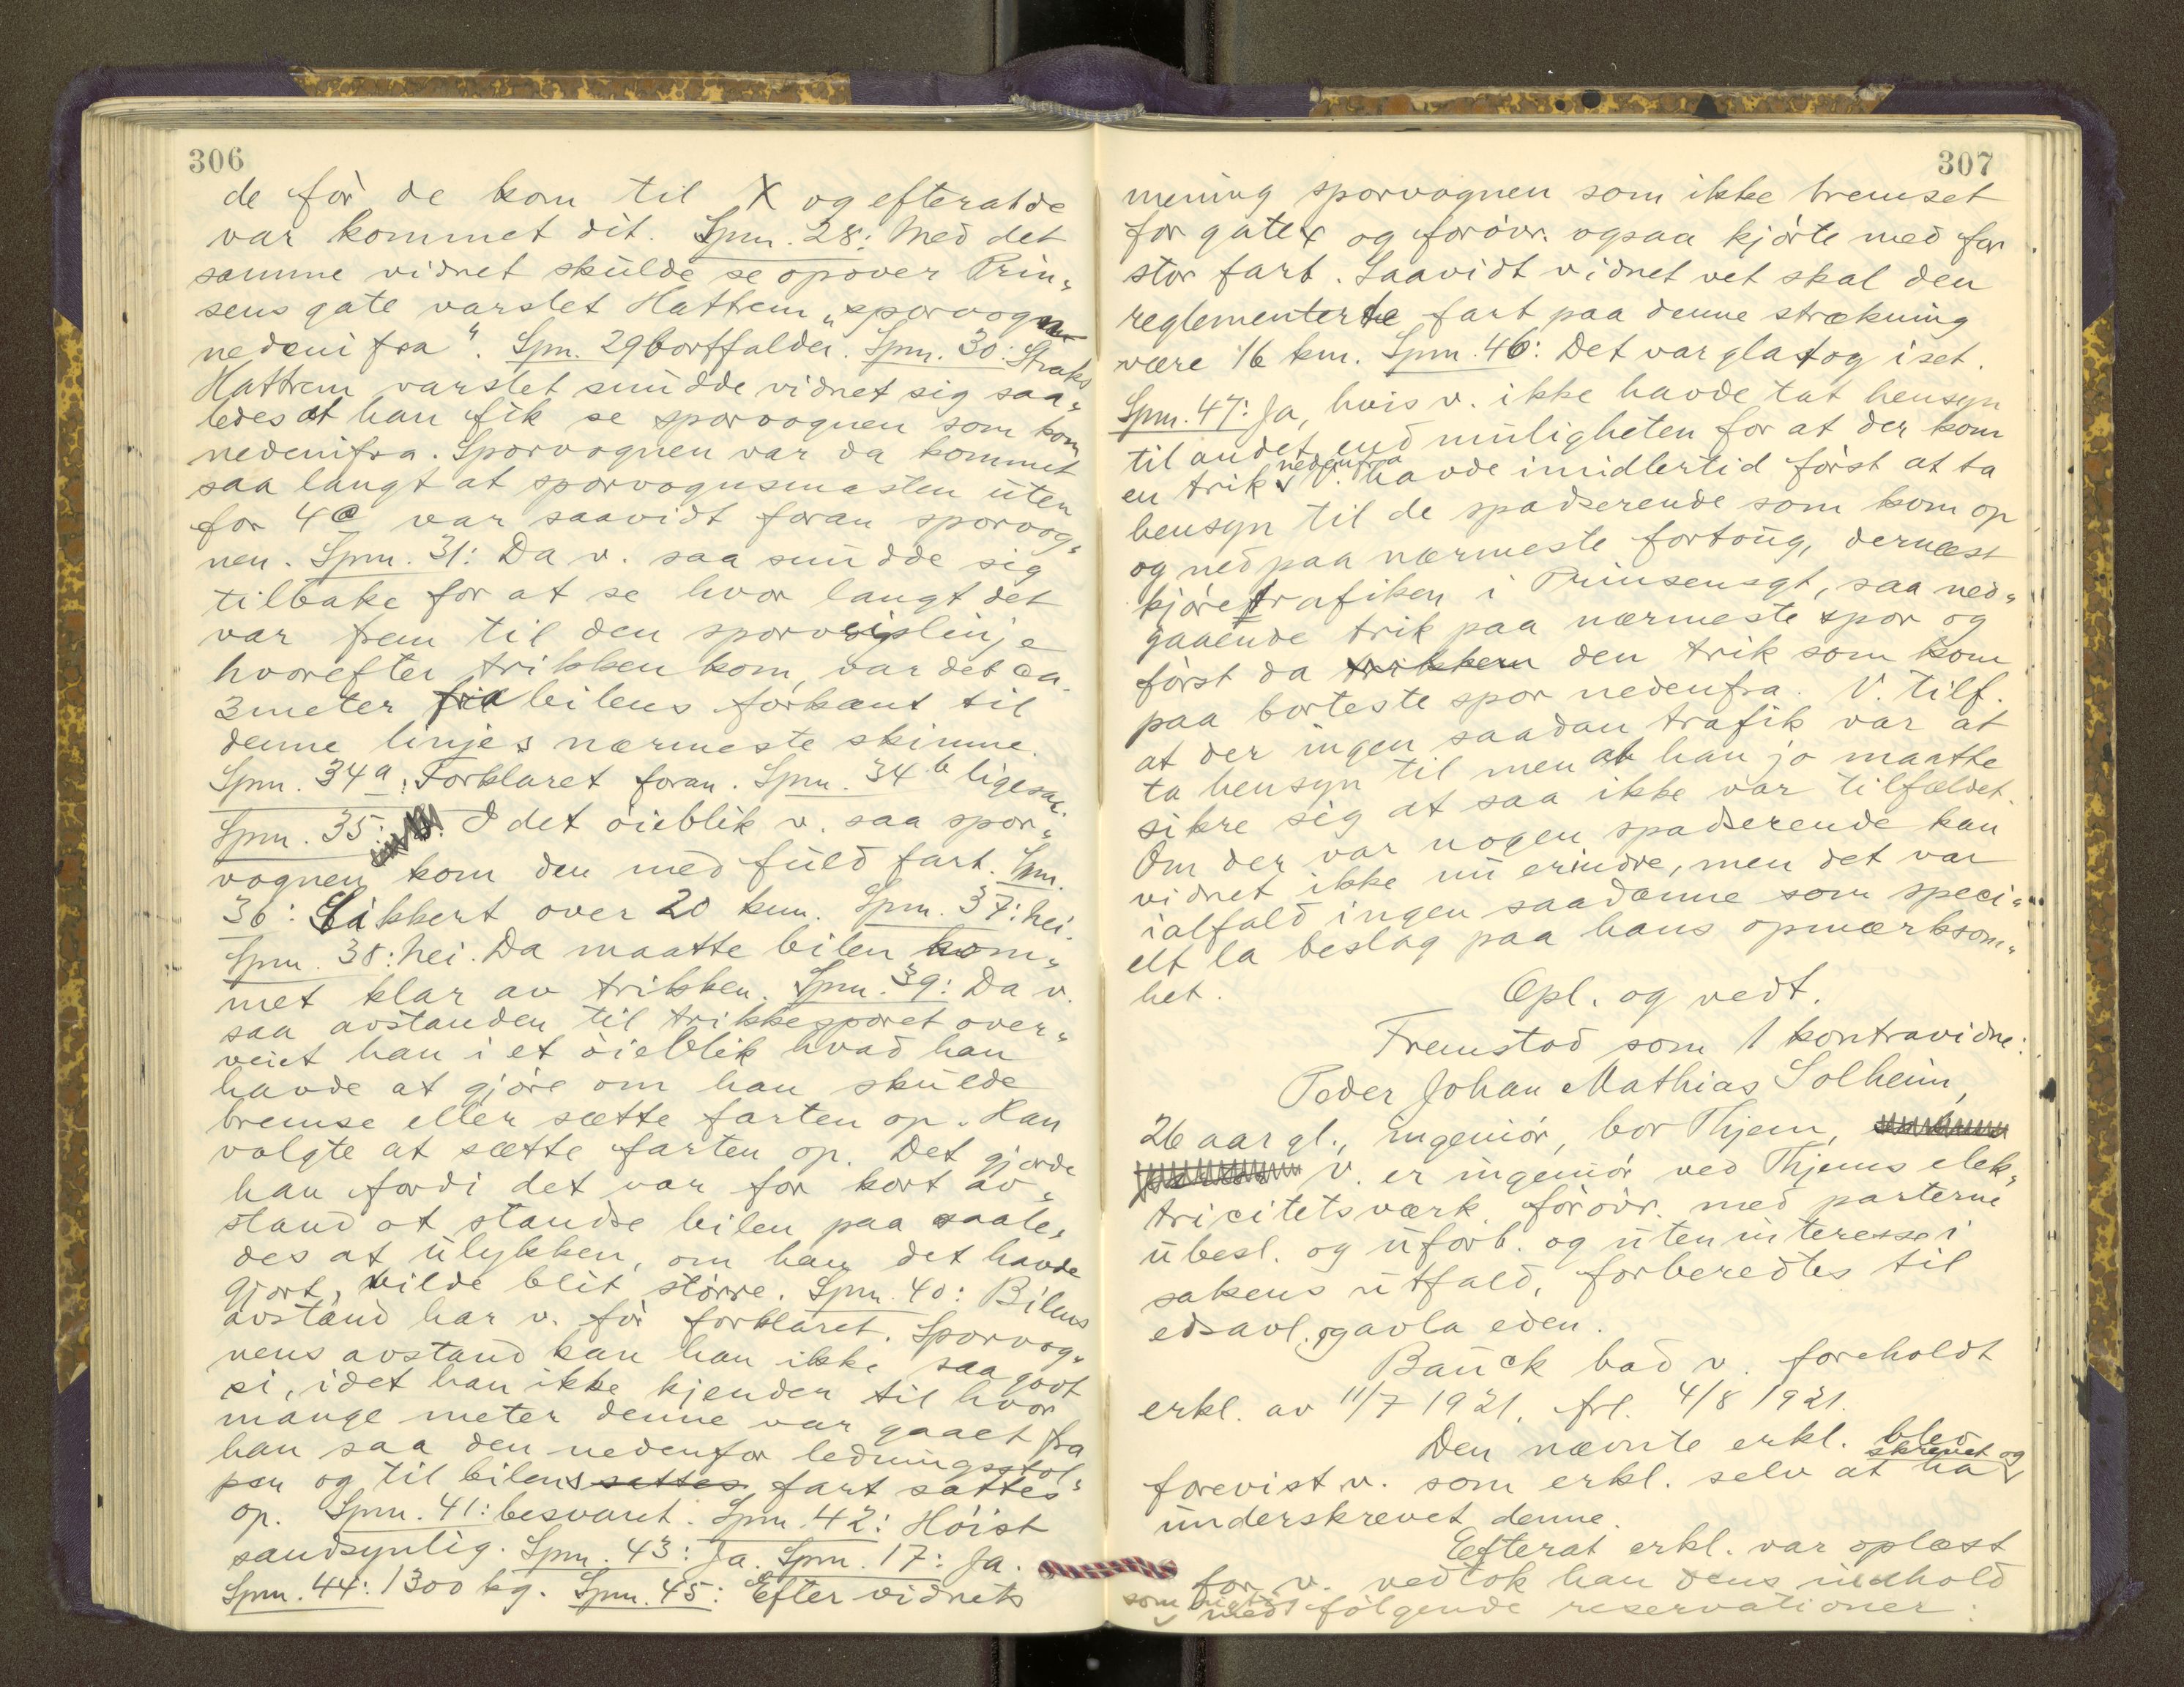 306
de før de kom til X og efterat de
var kommet dit. Spm. 28: Med det
samme vidnet skulde se opover Prin„
sens gate varslet Hattrem „sporvogn
nedenifra". Spm. 29 bortfalder. Spm. 30: Straks
Hattrem varslet snudde vidnet sig saa„
ledes at han fik se sporvognen som kom
nedenifra. Sporvognen var da kommet
saa langt at sporvognsmasten uten
for 4c var saavidt foran sporvog„
nen. Spm. 31: Da v. saa snudde sig
tilbake for at se hvor langt det
var frem til den sporveislinje
hvorefter trikken kom, var det ca.
3 meter fra bilens forkant til
denne linjes nærmeste skinne.
Spm. 34a: Forklaret foran. Spm. 34b ligesaa.
Spm. 35: I det øieblik v. saa spor„
vognen kom den med fuld fart. Spm.
36: Sikkert over 20 km. Spm. 37: Nei.
Spm. 38: Nei. Da maatte bilen kom„
met klar av trikken. Spm. 39: Da v.
saa avstanden til trikkesporet over„
veiet han i et øieblik hvad han
havde at gjøre om han skulde
bremse eller sætte farten op. Han
valgte at sætte farten op. Det gjorde
han fordi det var for kort av„
stand at standse bilen paa saale„
des at ulykken, om han det havde
gjort, vilde blit større. Spm. 40: Bilens
avstand har v. før forklaret. Sporvog„
nens avstand kan han ikke saa godt
si, idet han ikke kjender til hvor
mange meter denne var gaaet fra
han saa den nedenfor ledningsstol„
pen og til bilens sattes fart sattes
op. Spm. 41: besvaret. Spm. 42: Høist
sandsynlig. Spm. 43: Ja. Spm. 17: Ja.
Spm. 44: 1300 kg. Spm. 45: Efter vidnets
307
mening sporvognen som ikke bremset
for gatex og forøvr. ogsaa kjørte med for
stor fart. Saavidt vidnet vet skal den
reglementerte fart paa denne strækning
være 16 km. Spm. 46: Det var glat og iset.
Spm. 47: Ja, hvis v. ikke havde tat hensyn
til andet end muligheten for at der kom
nedenfra
en trik. V. havde imidlertid først at ta
hensyn til de spadserende som kom op
og ned paa nærmeste fortoug, dernæst
kjøretrafiken i Prinsensgt, saa ned„
gaaende trik paa nærmeste spor og
først da trikken den trik som kom
paa borteste spor nedenfra. V. tilf.
at der ingen saadan trafik var at
ta hensyn til men at han jo maatte
sikre sig at saa ikke var tilfældet.
Om der var nogen spadserende kan
vidnet ikke nu erindre, men det var
ialfald ingen saadanne som speci„
elt la beslag paa hans opmærksom„
het.
Opl. og vedt.
Fremstod som 1 kontravidne:
Peder Johan Mathias Solheim,
26 aar gl., ingeniør, bor Thjem,
v. er ingeniør ved Thjems elek„
tricitetsværk, forøvr. med parterne
ubesl. og uforb. og uten interesse i
sakens utfald, forberedtes til
edsavl. og avla eden.
Bauck bad v. foreholdt
erkl. av 11/7 1921, frl. 4/8 1921.
Den nævnte erkl. blev
skrevet og
forevist v. som erkl. selv at ha
underskrevet denne.
Efterat erkl. var oplæst
for v. vedtok han dens indhold
som rigtig med følgende reservationer: